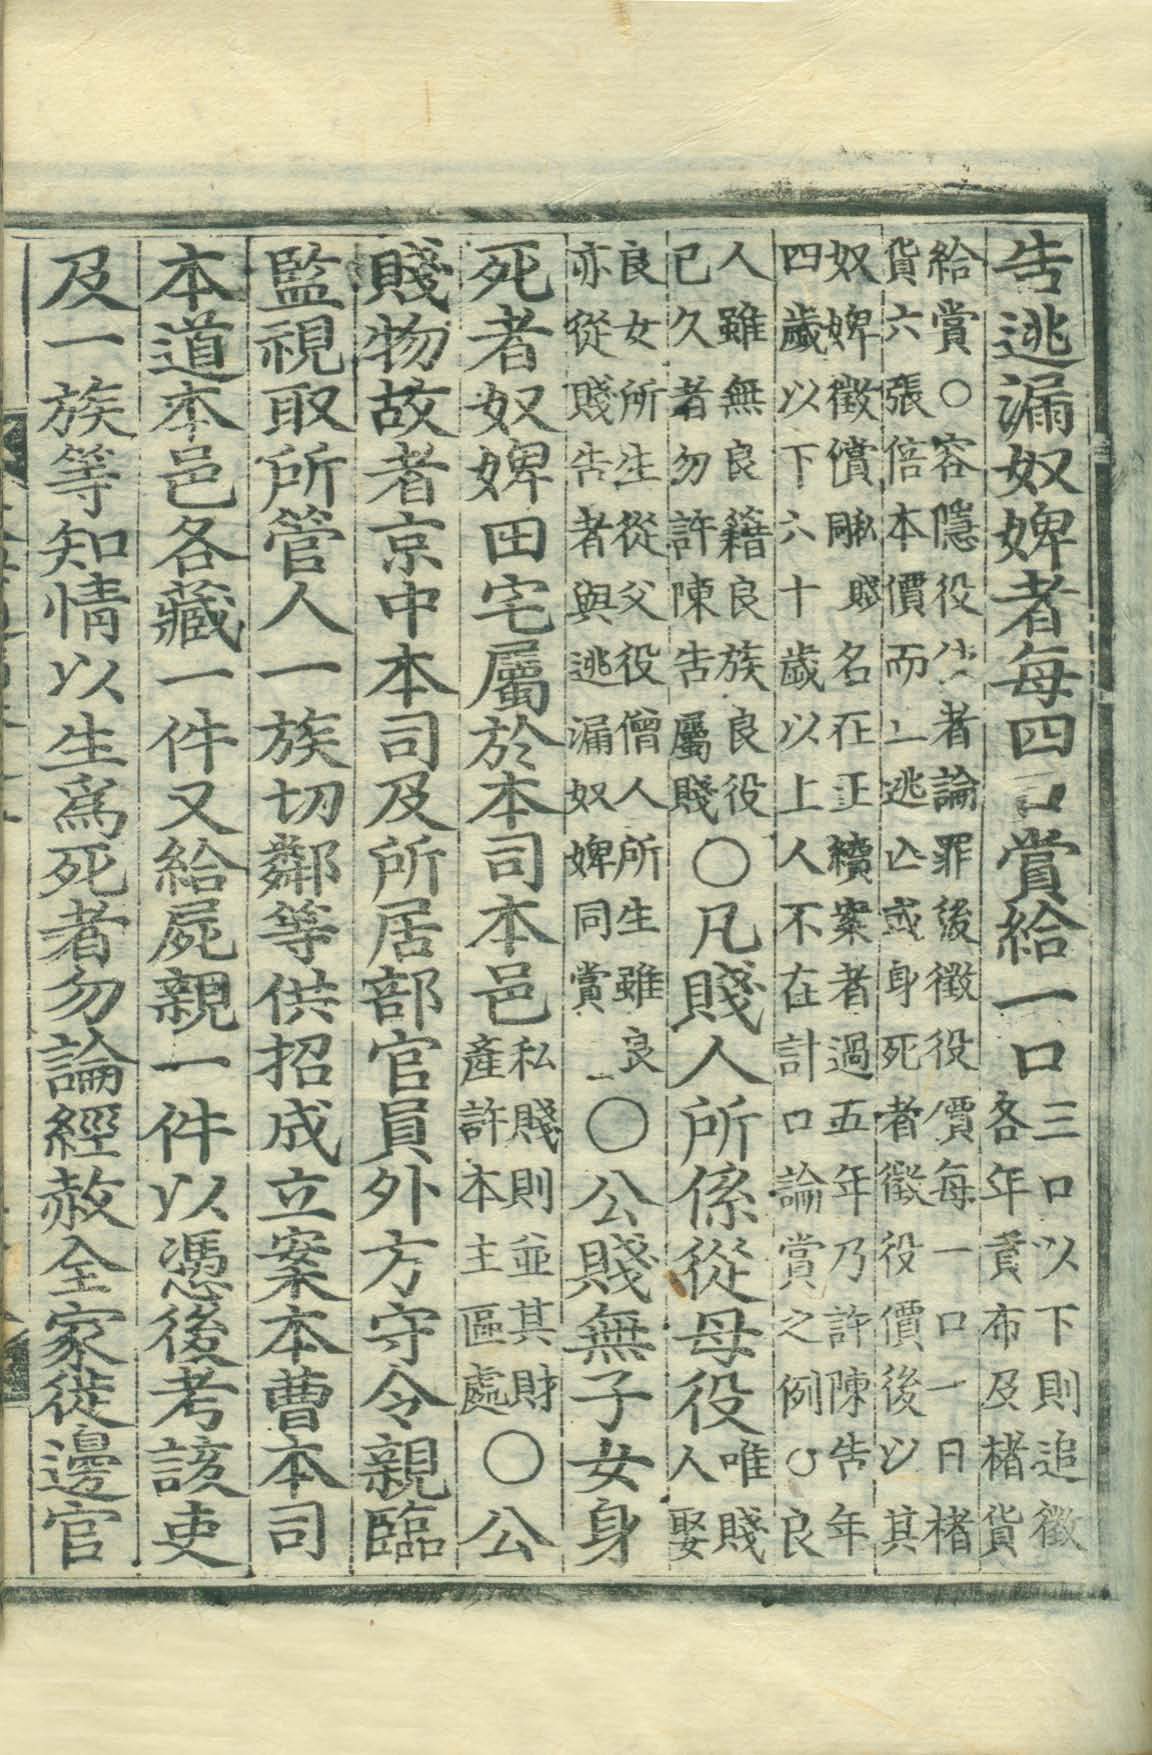 告逃漏奴婢者每四口賞給一口
三口以下則追徵
各年貢布及楮貨
給賞○容隱役使者論罪後徵役價每一口一日楮
貨六張倍本價而止逃亡或身死者徵役價後以其
奴婢徵償雖賤名在正續案者過五年乃許陳告年
四歲以下六十歲以上人不在計口論賞之例○良
人雖無良籍良族良役
已久者勿許陳告屬賤
○凡賤人所係從母役
唯賤
人娶
良女所生從父役僧人所生雖良
亦從賤告者與逃漏奴婢同賞
○公賤無子女身
死者奴婢田宅屬於本司本邑
私賤則並其財
產許本主區處
○公
賤物故者京中本司及所居部官員外方守令親臨
監視取所管人一族切鄰等供招成立案本曹本司
本道本邑各藏一件又給屍親一件以憑後考該吏
及一族等知情以生爲死者勿論經赦全家徙邊官